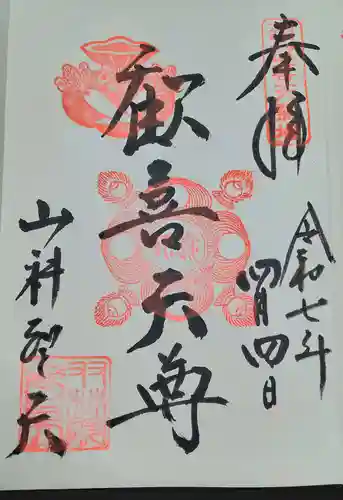 奉拝
令和七年
四月四日
歓喜天尊
山科聖天